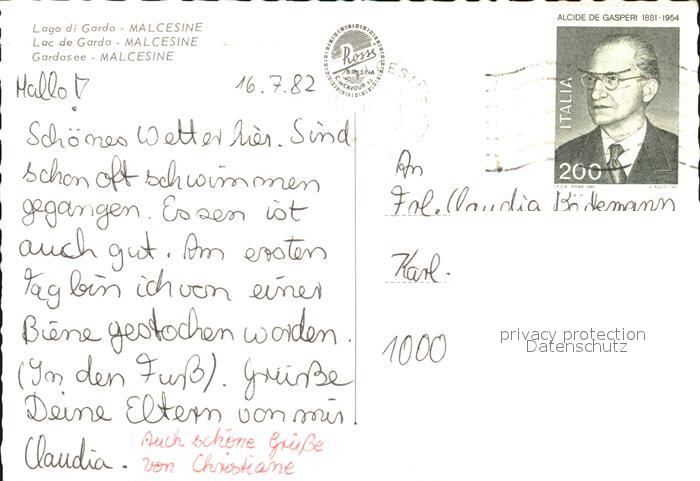 Lago di Garda - MALCESINE
Lac de Garda - MALCESINE
Gardasee - MALCESINE
Rossi
BRESCIA
ALCIDE DE GASPERI 1881-1954
ITALIA
200
Hallo!
16.7.82
Schönes Wetter hier. Sind
schon oft schwimmen
gegangen. Essen ist
auch gut. Am ersten
Tag bin ich von einer
Biene gestochen worden.
(In den Fuß). Grüße
Deine Eltern von mir.
Claudia.
Auch schöne Grüße
von Christiane
An
Frl. Claudia
Karl.
1000
privacy protection
Datenschutz